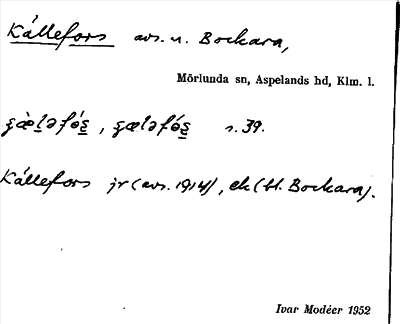 Kållefors avs. u. Bockara,
Mörlunda sn, Aspelands hd, Klm. l.
s. 39.
Kållefors jr (avs. 1914), ek (bl. Bockara).
Ivar Modéer 1952